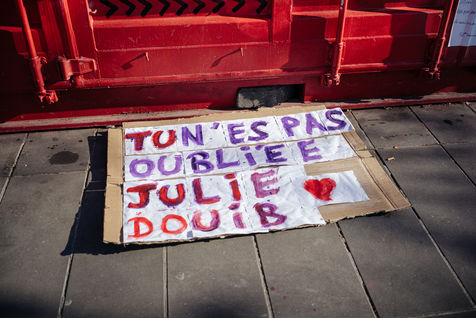 TU N'ES PAS
OUBLiÉE
JULiE
DOUiB